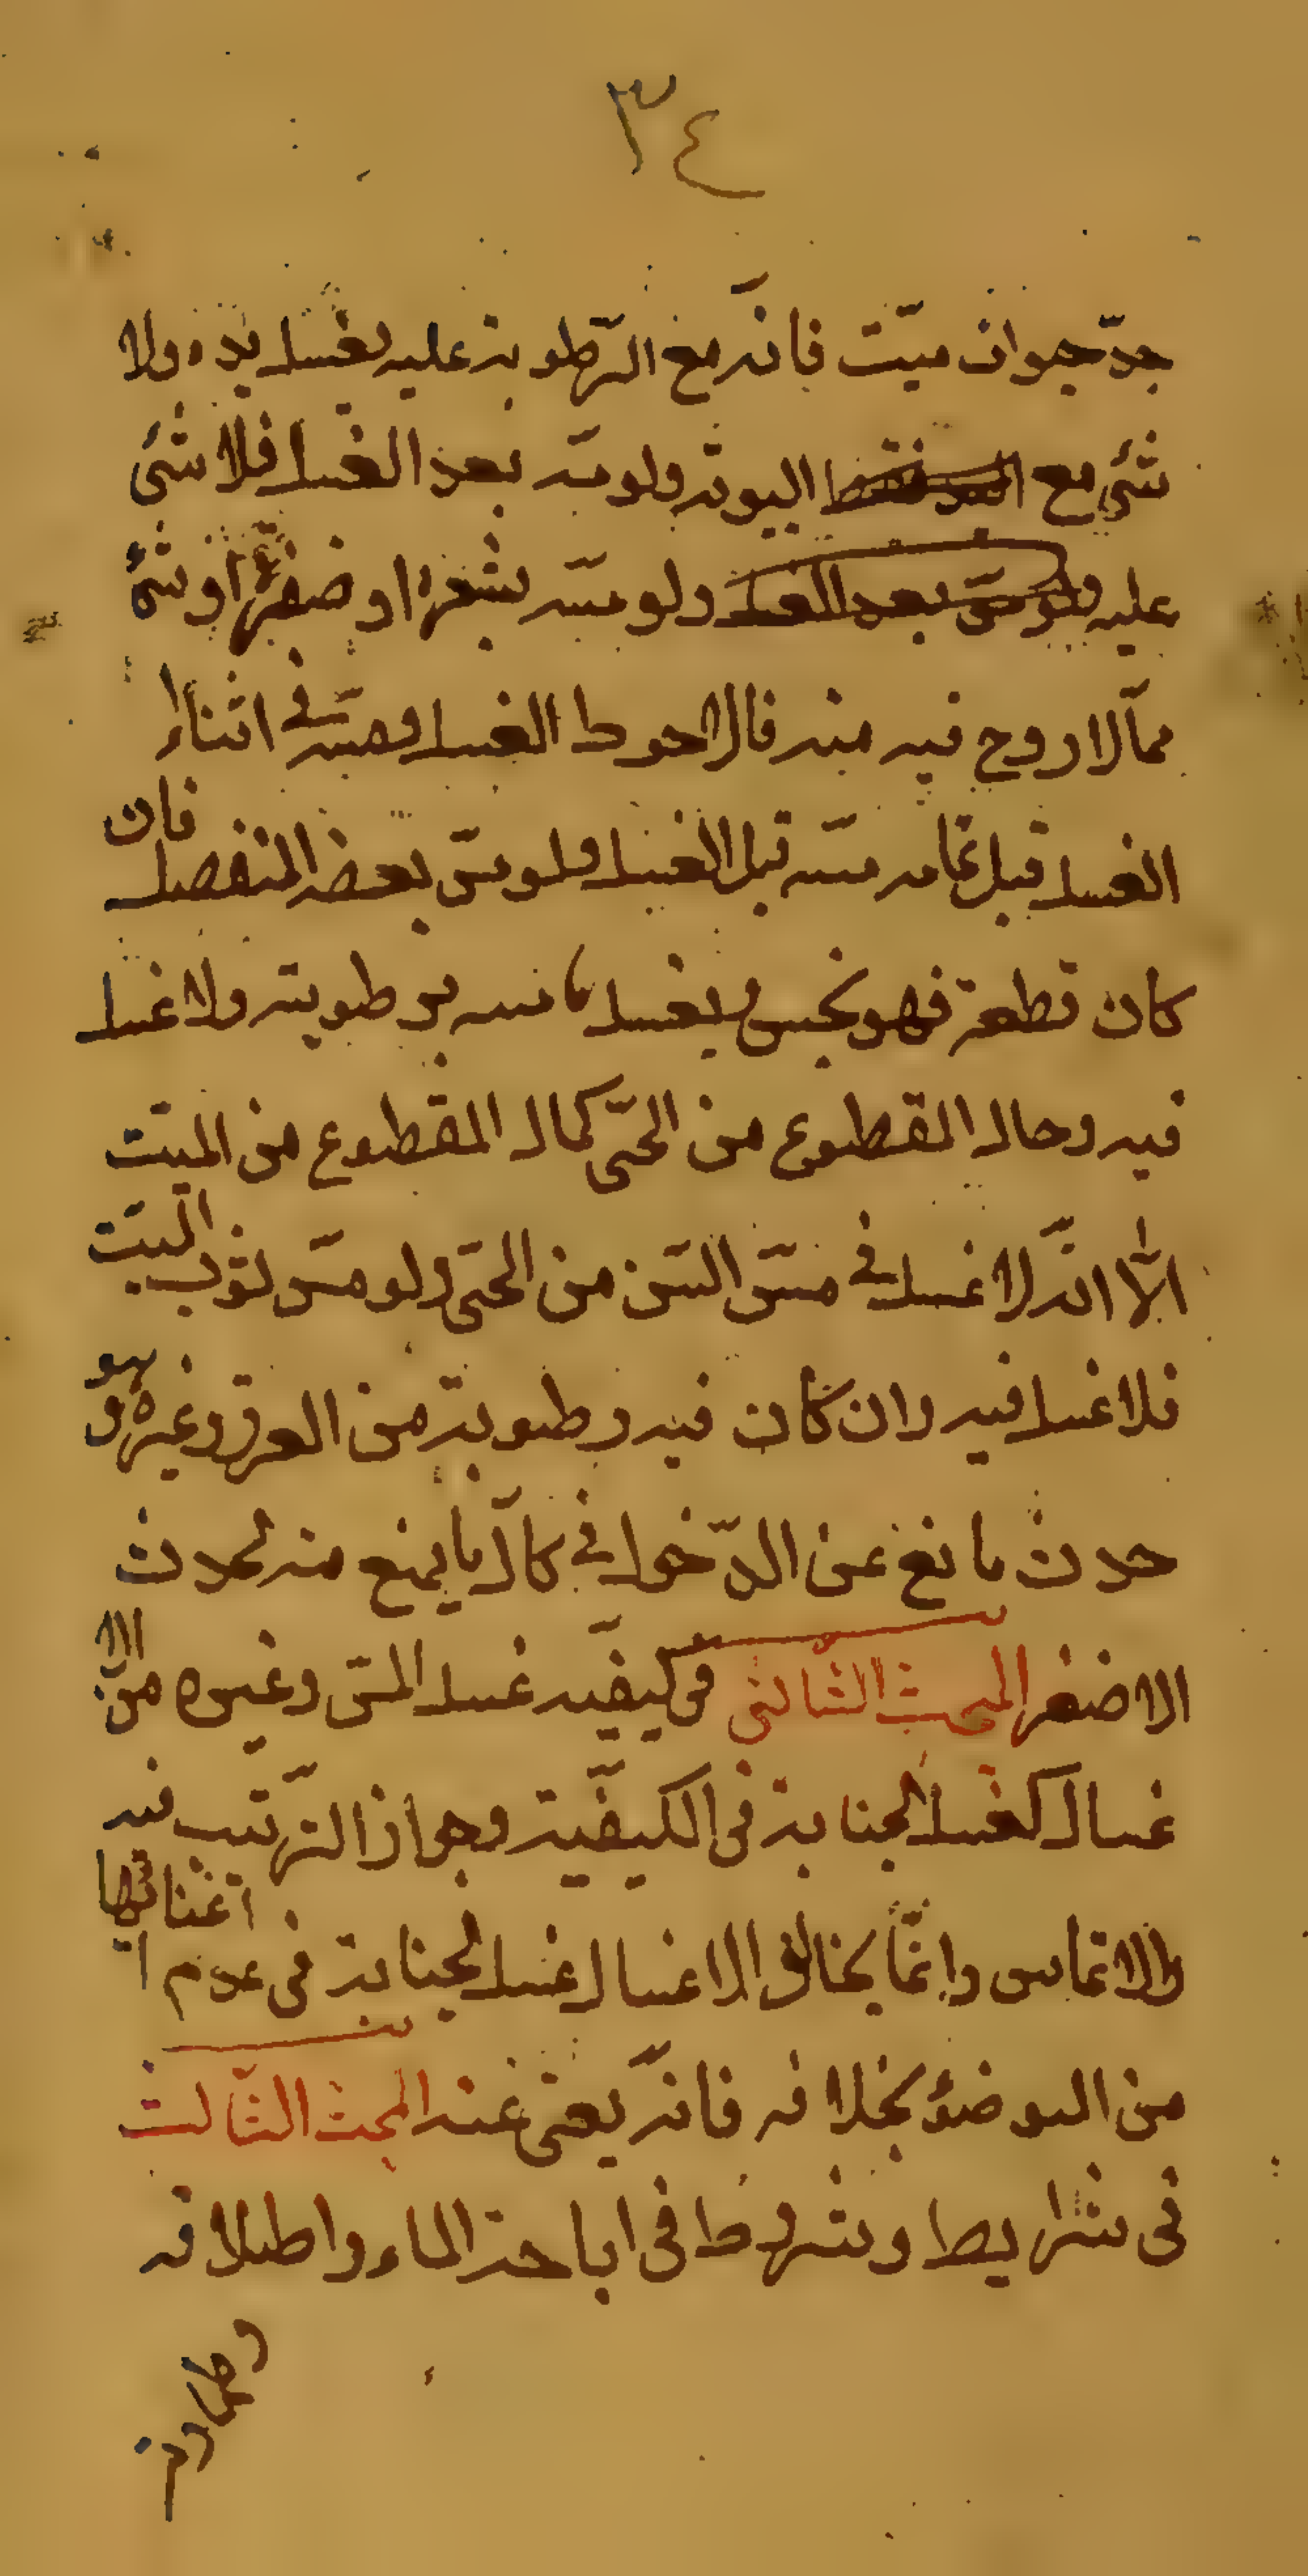 ٣٤
جدّ حيوان ميّت فانّه مع الرّطوبة عليه يغسل يده ولا
شئ مع اليبوته ولو مسّه بعد الغسل فلا شئ
عليه ولو مسّ بعد الغسل ولو مسّه بشعره او ضفره او شئ
ممّا لا روح فيه منه فالاحوط الغسل ومسّه في اثناء
الغسل قبل تمامه مسّه قبل الغسل ولو مسّ بعضه المنفصل فان
كان قطعة فهو نجس يغسل ما مسه برطوبته ولا غسل
فيه وحال المقطوع من الحىّ كحال المقطوع من الميت
الّا انّه لا غسل في مسّ السّن من الحىّ ولو مسّ ثوب الميّت
فلا غسل فيه وان كان فيه رطوبة من العرق وغيره وهو
حدث مانع عن الدّخول في كلّ ما يمنع منه الحدث
الاصغر المبحث الثّاني في كيفيّه غسل المسّ وغيره من الا
غسال كغسل الجنابة في الكيفيّة وجواز التّرتيب فيه
والارتماس وانّما يخالف الاغسال غسل الجنابة في عدم اغنائها
من الوضوء بخلافه فانّه يغنى عنه المبحث الثّالث
في شرايط ويشترط في اباحة الماء واطلاقه
وطهارته